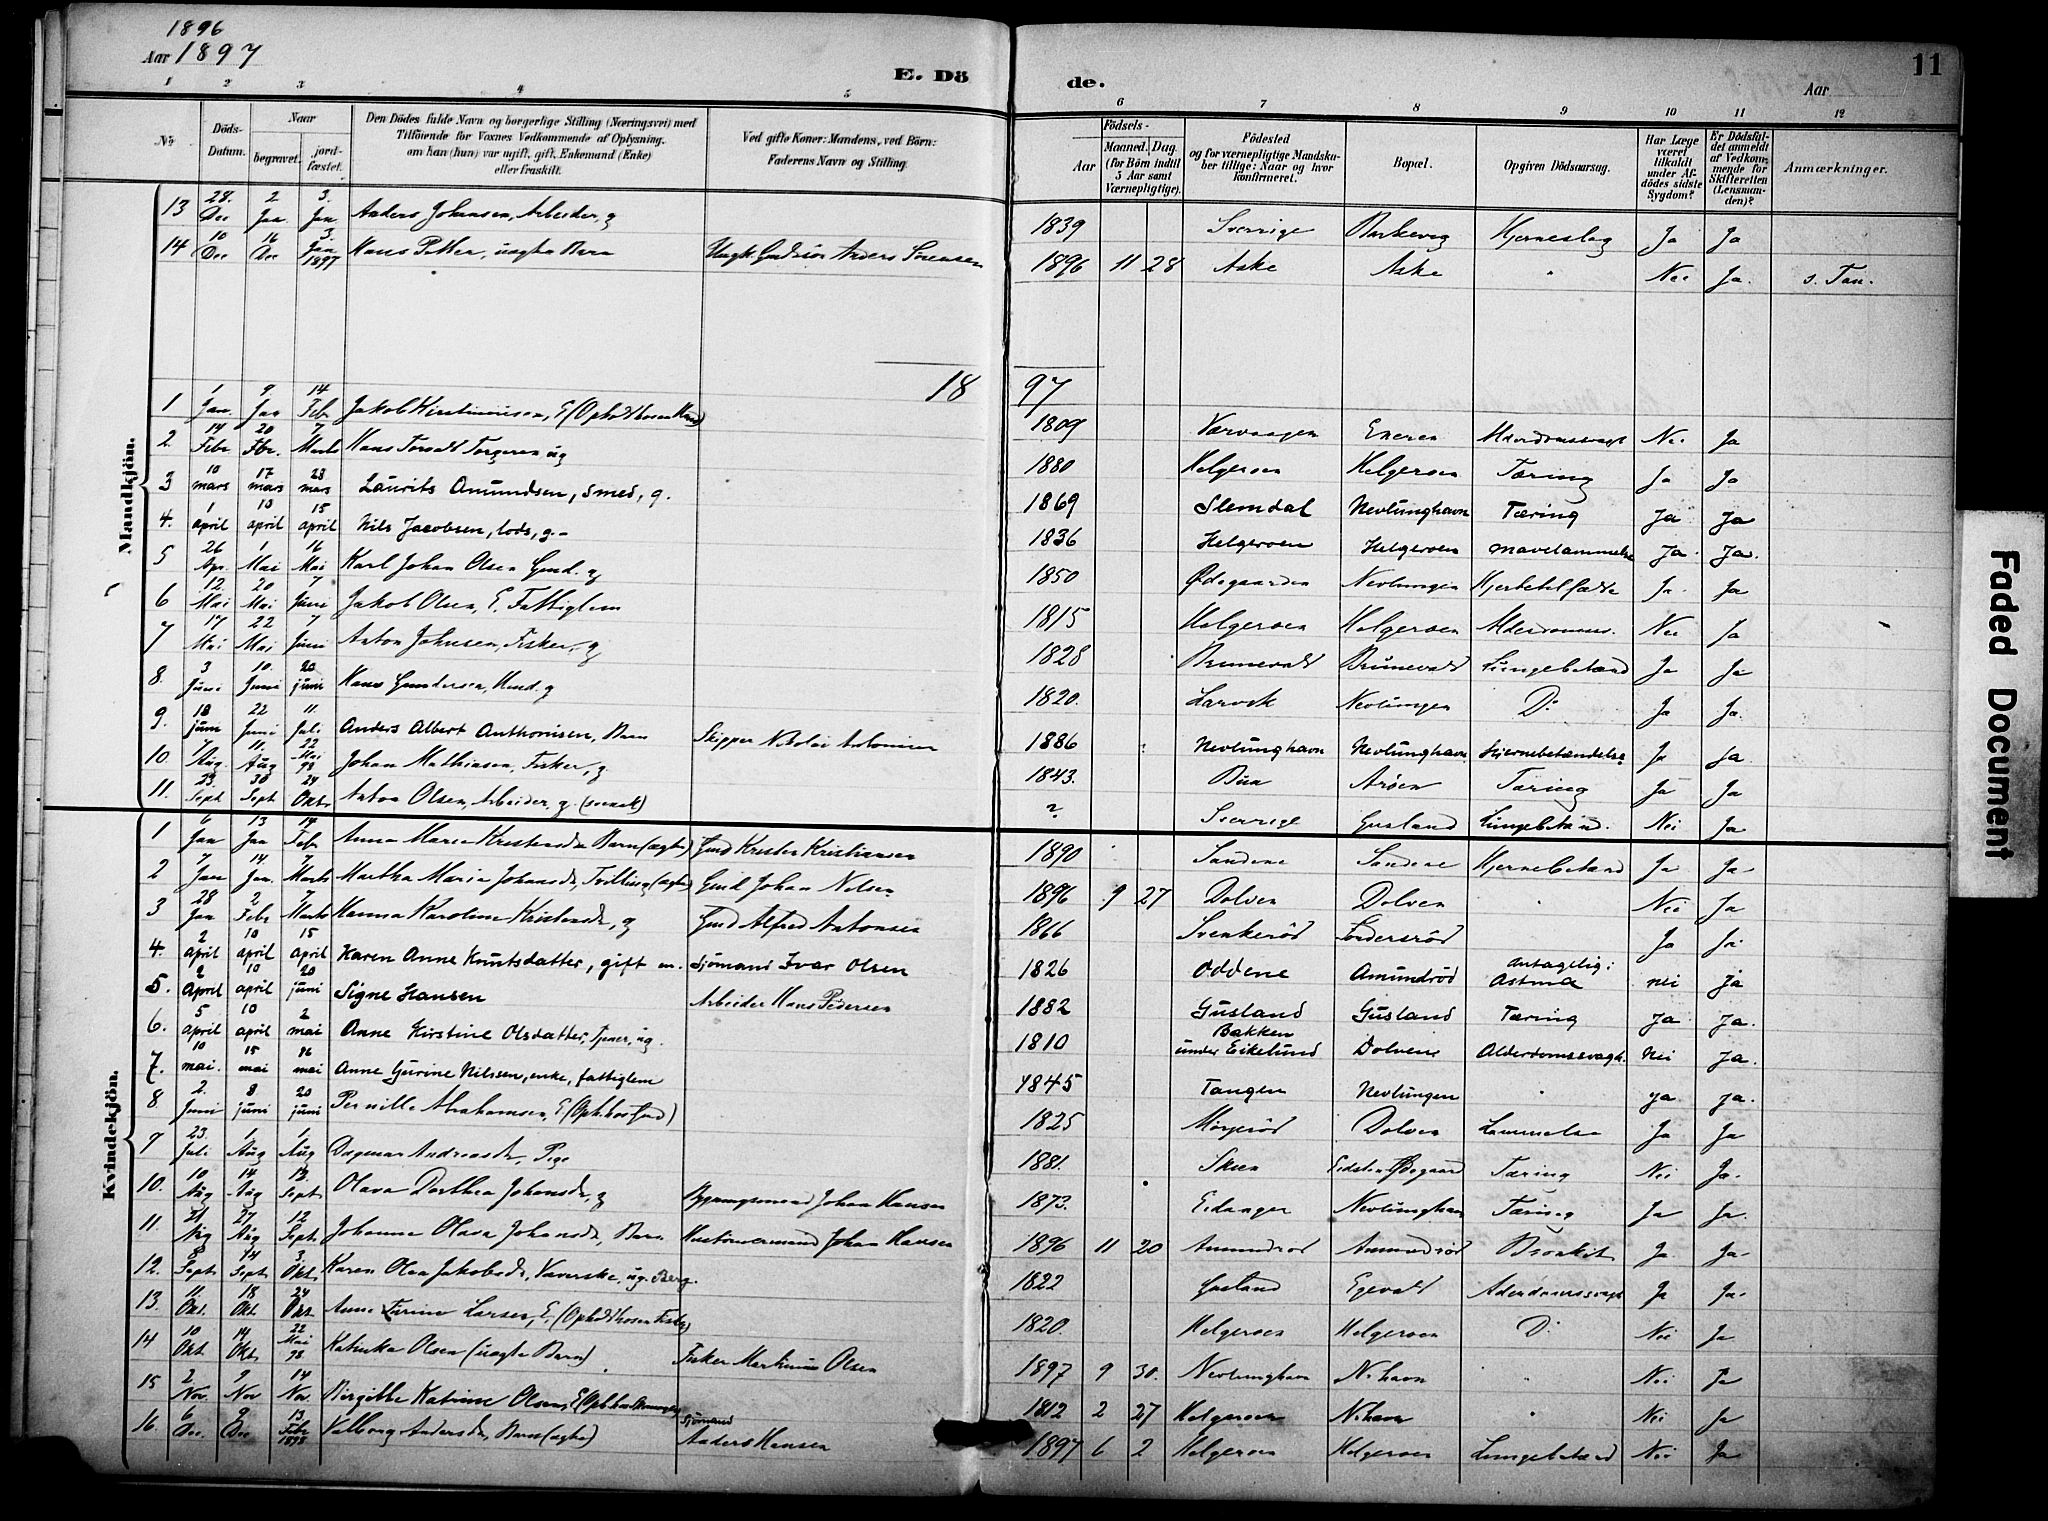 1896
Aar 1897
E. Dö
de.
Aar
11
1 2 3 4 5 6 7 8 9 10 11 12
No
Döds-Datum.
Naar
begravet.
jordfæstet.
Den Dödes fulde Navn og borgerlige Stilling (Næringsvei) med
Tilföiende for Voxnes Vedkommende af Oplysning,
om han (hun) var ugift, gift, Enkemand (Enke)
eller fraskilt.
Ved gifte Koner: Mandens, ved Börn:
Faderens Navn og Stilling.
Födsels-
Aar
Maaned. Dag.
(for Börn indtil
5 Aar samt
Værnepligtige).
Födested
og for værnepligtige Mandska-
ber tillige: Naar og hvor
konfirmeret.
Bopæl.
Opgiven Dödsaarsag.
Har Læge
været
tilkaldt
under Af-
dödes sidste
Sygdom?
Er Dödsfal-
det anmeldt
af Vedkom-
mende for
Skifteretten
(Lensman-
den)?
Anmærkninger.
Mandkjön.
13 28. Dec 2 Jan 3. Jan Anders Johansen, Arbeider, g 1839 Sverrige Barkevig Hjerneslag Ja Ja
14 10 Dec 16 Dec 3. Jan 1897 Hans Petter, uægte Barn Ungk. Anders Sörensen 1896 11 28 Aske Aske " Nei Ja. s. Tan.
18 97
1 1 Jan. 9 Jan 14 Febr Jakob Kristiansen, E 1809 Værvaagen Eneren Alderdomssvagh Nei Ja
2. 14 Febr 20 Fbr. 7 Marts Hans Torvald Torgersen ug 1880 Helgeroen Helgeroen Tæring Ja Ja
3 10 mars 17 mars 28 mars Laurits Amundsen, smed, g. 1869 Slemdal Nevlunghavn Tæring Ja Ja
4. 1 april 13 april 15 april Nils Jacobsen, lods, g.- 1836 Helgeroen Helgeroen mavelammelse Ja. Ja.
5 26 Apr. 1 Mai 16 Mai Karl Johan Olsen Gmd. g 1850 Ödegaarden Nevlungen Hjertefeil Ja. Ja
6 12. Mai 20 Mai 7 Juni Jakob Olsen, E. Fattiglem 1815 Helgeroen Helgeroen Alderdomss. Nei Ja
7 17 Mai 22 Mai 7 Juni Anton Johnsen, Fisker, g 1828 Brunevald Brunevald Lungebetænd Ja Ja
8. 3 Juni 10. Juni 20 juni Hans Gundersen, g 1820. Larvik Nevlungen Do Ja Ja.
9. 18 juni 22 Juni 11. Juli Anders Albert Anthonisen, Barn Skipper Nikolai Antonisen 1886 Nevlunghavn Nevlunghavn Hjernebetændelse Ja Ja.
10. 7 Aug. 11. Aug 22 Mai 98 Johan Mathiasen, Fisker, g 1843. Bua Aröen Tæring Ja Ja
11. 23. Sept 30 Sept 24 Okt. Anton Olsen, Arbeider g. (svensk) ? Sverrige Gusland Lungebetænd. Nei Ja
Kvindekjön.
1 6 Jan 13 Jan 14 Febr Anna Marie Kristensdr Barn (ægte) Gmd Krister Kristiansen 1890 Sandene Sandene Hjernebetænd Ja Ja
2 7 Jan 14. Jan. 7 Marts Martha Maria Johansdr, Tvilling (ægte) Gmd Johan Nilsen 1896 9 27 Dolven Dolven " Nei Ja
3 28 Jan 2 Febr 7 Marts Hanna Karoline Kristensdr, g Gmd Alfred Antonsen 1866 Svenkeröd Ja Ja
4. 2 april 10 april 15 april Karen Anne Knutsdatter, gift m. Sjömand Ivar Olsen 1826 Oddene Amundröd antagelig: Astma nei ja
5. 2 april 10 april 20 juni Signe Hansen Arbeider Hans Pedersen 1882 Gusland Gusland Tæring ja Ja.
6. 5 april 10 april 2 mai Anne Kirstine Olsdatter, Tjener, ug. 1810 Bakken under Eikelund Dolvene Alderdomssvagh. nei Ja.
7. 10 mai. 15 mai 26 mai Anne Gurine Nilssen, enke, fattiglem 1845 Tangen Nevlungen " ja Ja.
8 2. Juni 8 juni 20 juni Pernille Abrahamsen, E 1825 Dolven Lammelse Ja Ja
9 23. Juli 1 Aug 1 Aug Dagmar Andreasdr, Pige 1881. Skien Tæring Nei Ja.
10. 10 Aug 14 Aug 12. Sept. Olava Dorthea Johansdr, g Johan Hansen 1873. Eidanger Nevlunghavn Tæring Ja Ja.
11. 21 Aug 27 Aug 12 Sept. Johanna Olava Johansdr, Barn Johan Hansen 1896 11 20 Amundröd Amundröd Bronkit Ja Ja.
12. 8 Sept. 14 Sept. 3. Okt. Karen Olea Jakobsdr, Væverske, ug. Berg. 1822 Gusland Egevald Alderdomssvagh Ja Ja.
13. 11. Okt. 18 Okt. 24 Okt. Anne Larsen, E. 1820. Helgeroen Helgeroen Do Nei Ja
14 10 Okt. 14 Okt. 22 Mai 98. Katinka Olsen (uægte Barn) Fisker Martinius Olsen 1897 9 30. Nevlunghavn N.havn " Nei Ja
15 2 Nov. 9 Nov 14 Nov. Birgitte Katrine Olsen, E 1812 2 27 Helgeroen N.havn " Nei Ja
16. 6 Dec. 9 Dec 13. Febr 1898 Valborg Andersdr, Barn (ægte) Sjömand Anders Hansen 1897 6 2 Helgeroen Helgeroen Lungebetænd Nei Ja
Faded Document